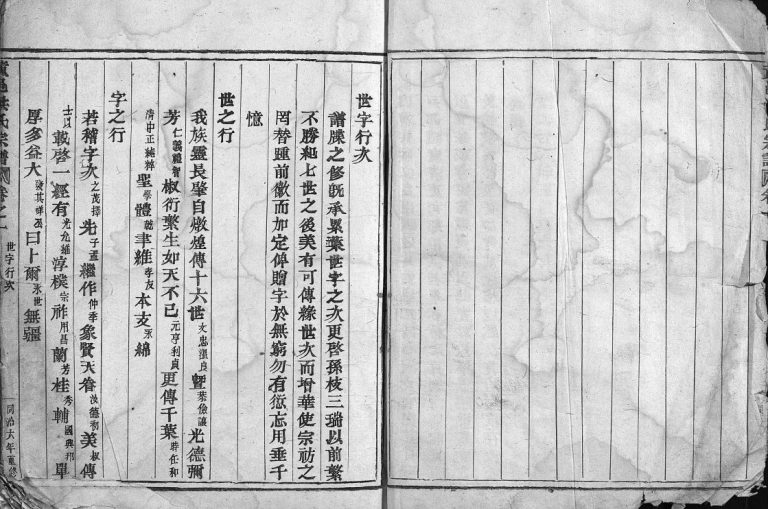 世字行次
譜牒之修旣承累葉世字之次更啓孫枝三瑞以前繁
不勝紀七世之後美有可傳緣世次而增華使宗祊之
罔替踵前徽而加定俾贈字於無窮勿有愆忘用垂千
憶
世之行
我族靈長肇自燉煌傳十六世文忠張良曁恭儉讓光德彌
芳仁義禮智椒衍繁生如天不已元亨利貞更傳千葉時任和
清中正純粹聖學體乾聿維孝友本支永綿
字之行
若稽字次之茂擇先子孟繼作仲季象賢天眷汝德和美叔傳
士以載啓一經有光允迪淳樸宗祚用昌蘭芳桂秀輔國興邦單
厚多益大發其祥丕曰卜爾永世無疆
氏宗譜
卷之
世字行次
同治六年重修